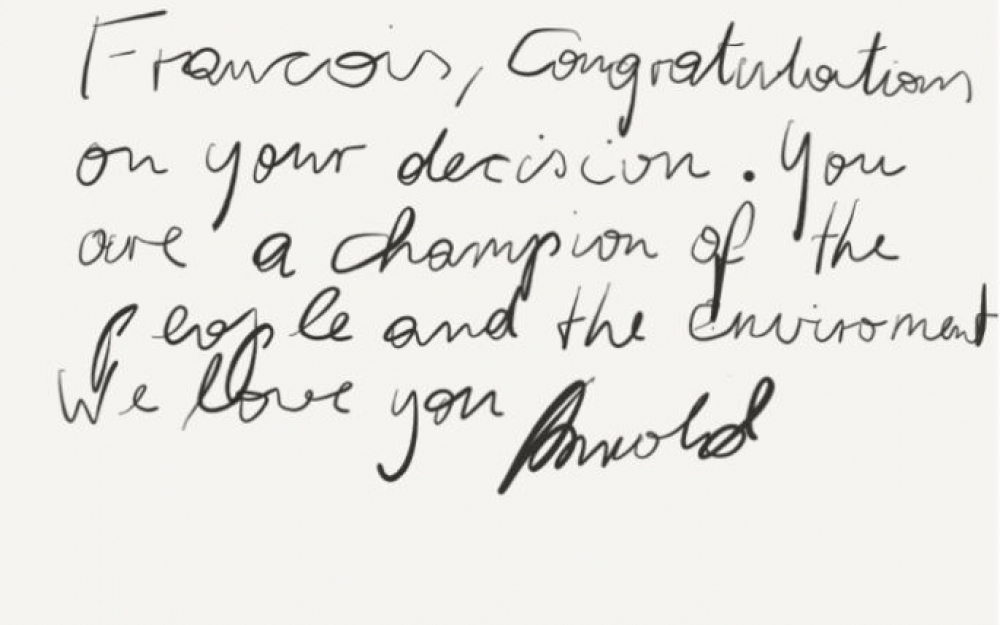 Francois, Congratulations
on your decision. You
are a champion of the
people and the enviroment
We love you Arnold